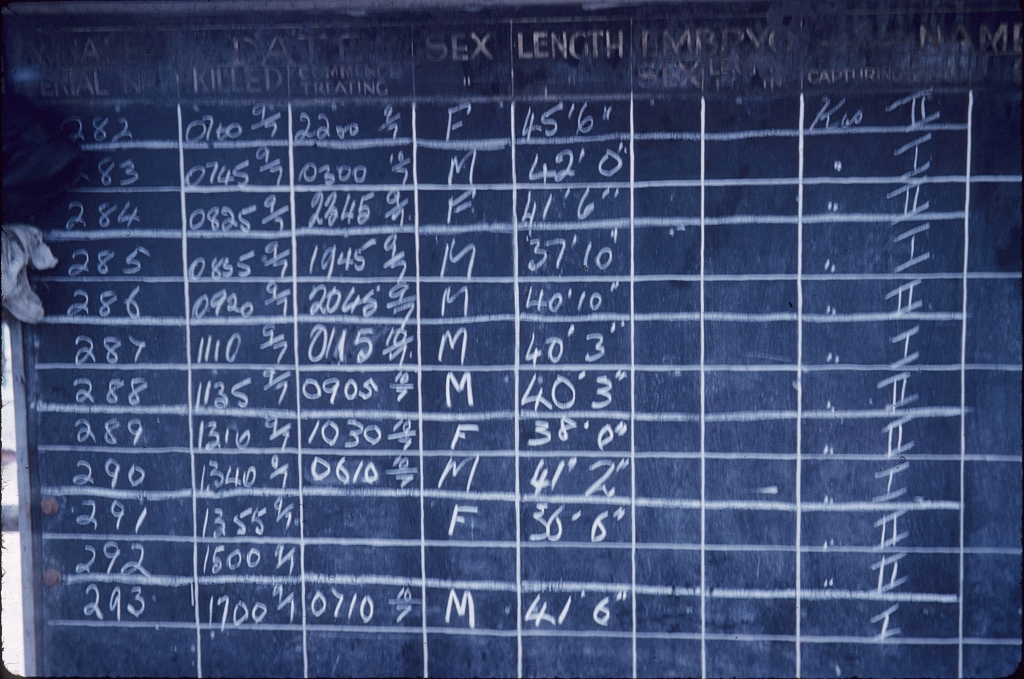 DATE SEX LENGTH EMBRYO NAME
SERIAL No KILLED COMMENCE TREATING " " SEX LENGTH CAPTURING
282 0700 9/7 2200 9/7 F 45'6" Kos H
283 0745 9/7 0300 10/7 M 42'0" " H
284 0825 9/7 2345 9/7 F 41'6" " H
285 0855 9/7 1945 9/7 M 37'10" " H
286 0920 9/7 2045 9/7 M 40'10" H
287 1110 9/7 0115 10/7 M 40'3" " H
288 1135 9/7 0905 10/7 M 40'3" " H
289 1310 9/7 1030 10/7 F 38'0" " H
290 1340 9/7 0610 10/7 M 41'2" " H
291 1355 9/7 F 36'6" " H
292 1500 9/7 " H
293 1700 9/7 0710 10/7 M 41'6" H